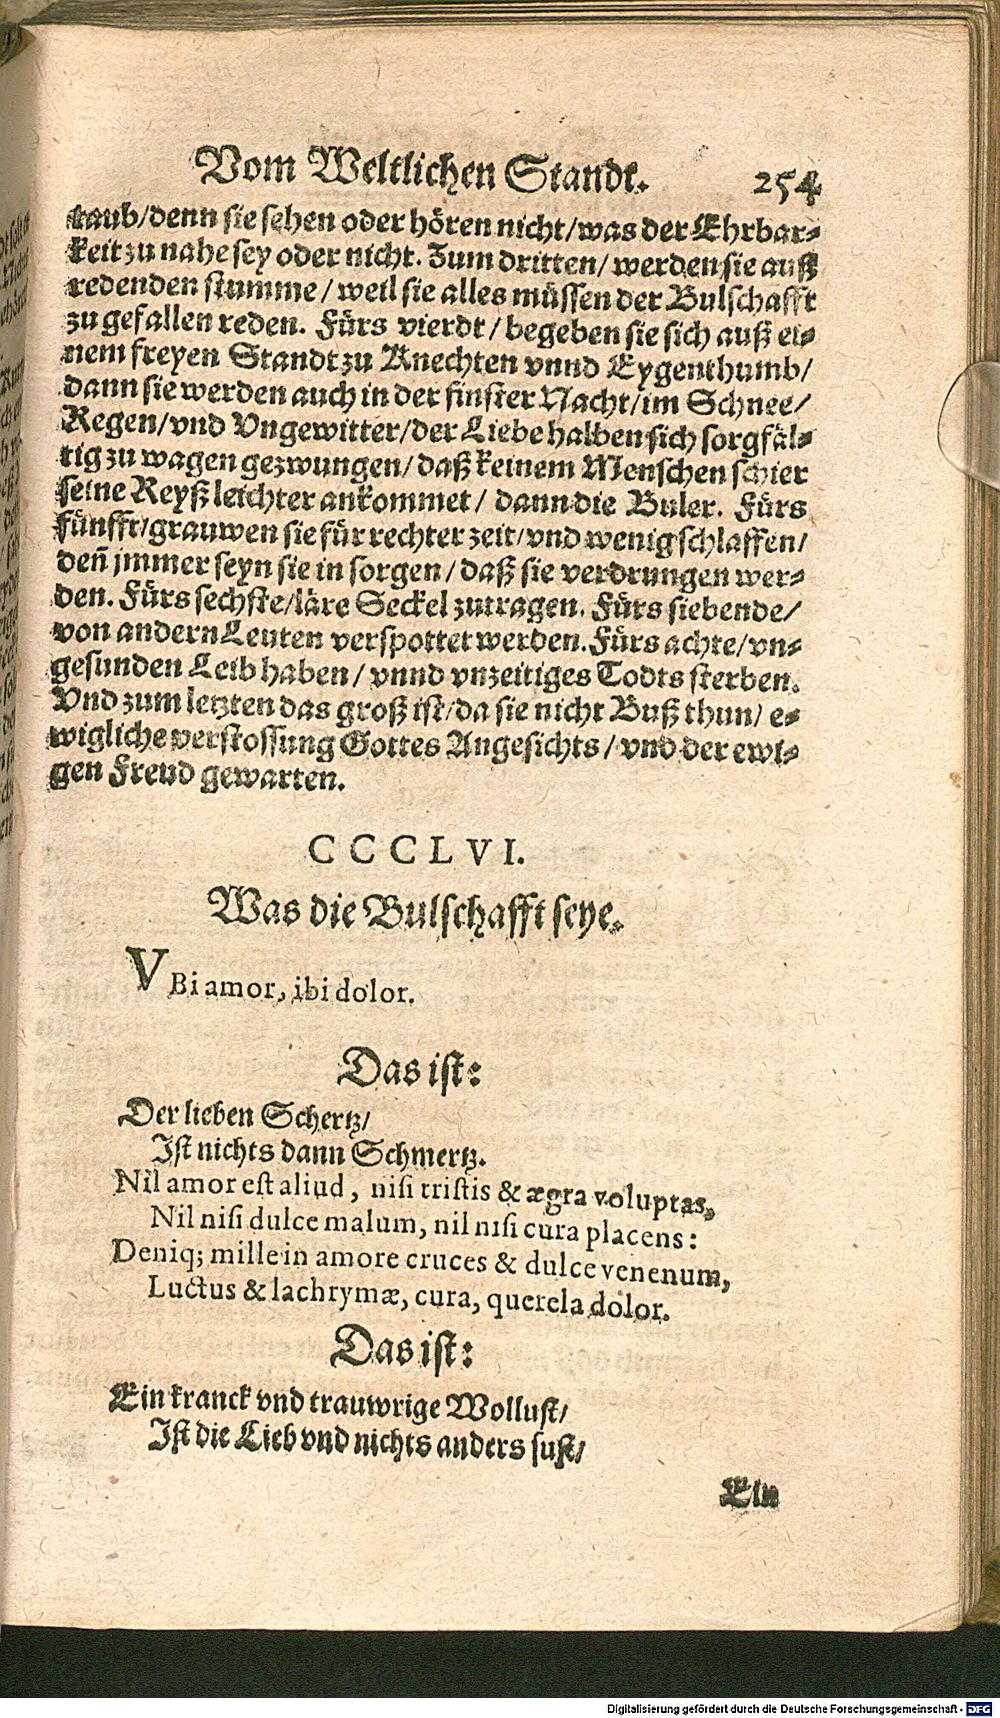 Vom Weltlichen Standt. 254
taub/denn sie sehen oder hören nicht/was der Ehrbar-
keit zu nahe sey oder nicht. Zum dritten/ werden sie auß
redenden stumme/ weil sie alles müssen der Bulschafft
zu gefallen reden. Fürs vierdt/ begeben sie sich auß ei-
nem freyen Standt zu Knechten vnnd Eygenthumb/
dann sie werden auch in der finster Nacht/im Schnee/
Regen/vnd Vngewitter/der Liebe halben sich sorgfäl-
tig zu wagen gezwungen/ daß keinem Menschen schier
seine Reyß leichter ankommet/ dann die Buler. Fürs
fünfft/grauwen sie für rechter zeit/vnd wenig schlaffen/
deñ jmmer seyn sie in sorgen/ daß sie verdrungen wer-
den. Fürs sechste/läre Seckel zutragen. Fürs siebende/
von andern Leuten verspottet werden. Fürs achte/vn-
gesunden Leib haben/ vnnd vnzeitiges Todts sterben.
Vnd zum letzten das groß ist/da sie nicht Buß thun/ e-
wigliche verstossung Gottes Angesichts/ vnd der ewi-
gen Freud gewarten.
CCCLVI.
Was die Bulschafft seye.
VBi amor, ibi dolor.
Das ist:
Der lieben Schertz/
Ist nichts dann Schmertz.
Nil amor est aliud, nisi tristis & ægra voluptas,
Nil nisi dulce malum, nil nisi cura placens:
Deniq; mille in amore cruces & dulce venenum,
Luctus & lachrymæ, cura, querela dolor.
Das ist:
Ein kranck vnd trauwrige Wollust/
Ist die Lieb vnd nichts anders sust/
Ein
Digitalisierung gefördert durch die Deutsche Forschungsgemeinschaft - DFG